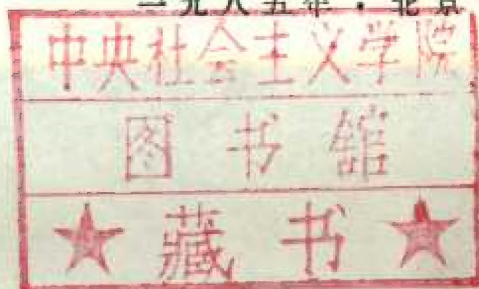 一九八五年·北京
中央社会主义学院
图书馆
★藏书★